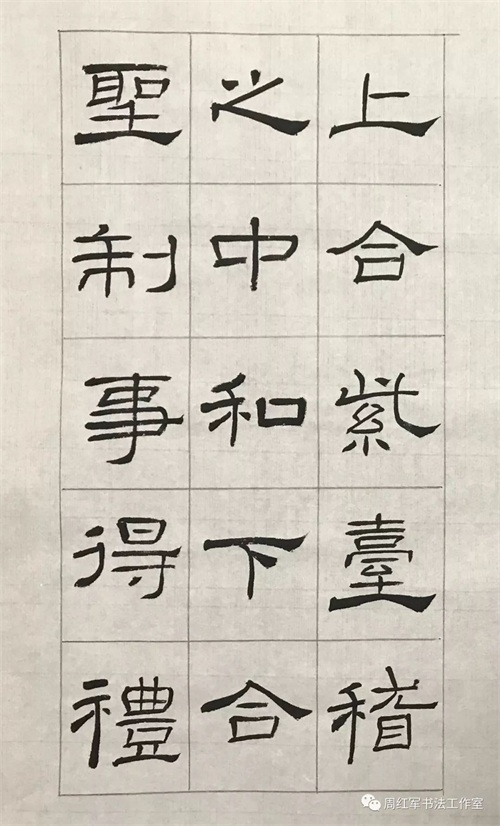 上合紫臺稽
之中和下合
聖制事得禮
周红军书法工作室